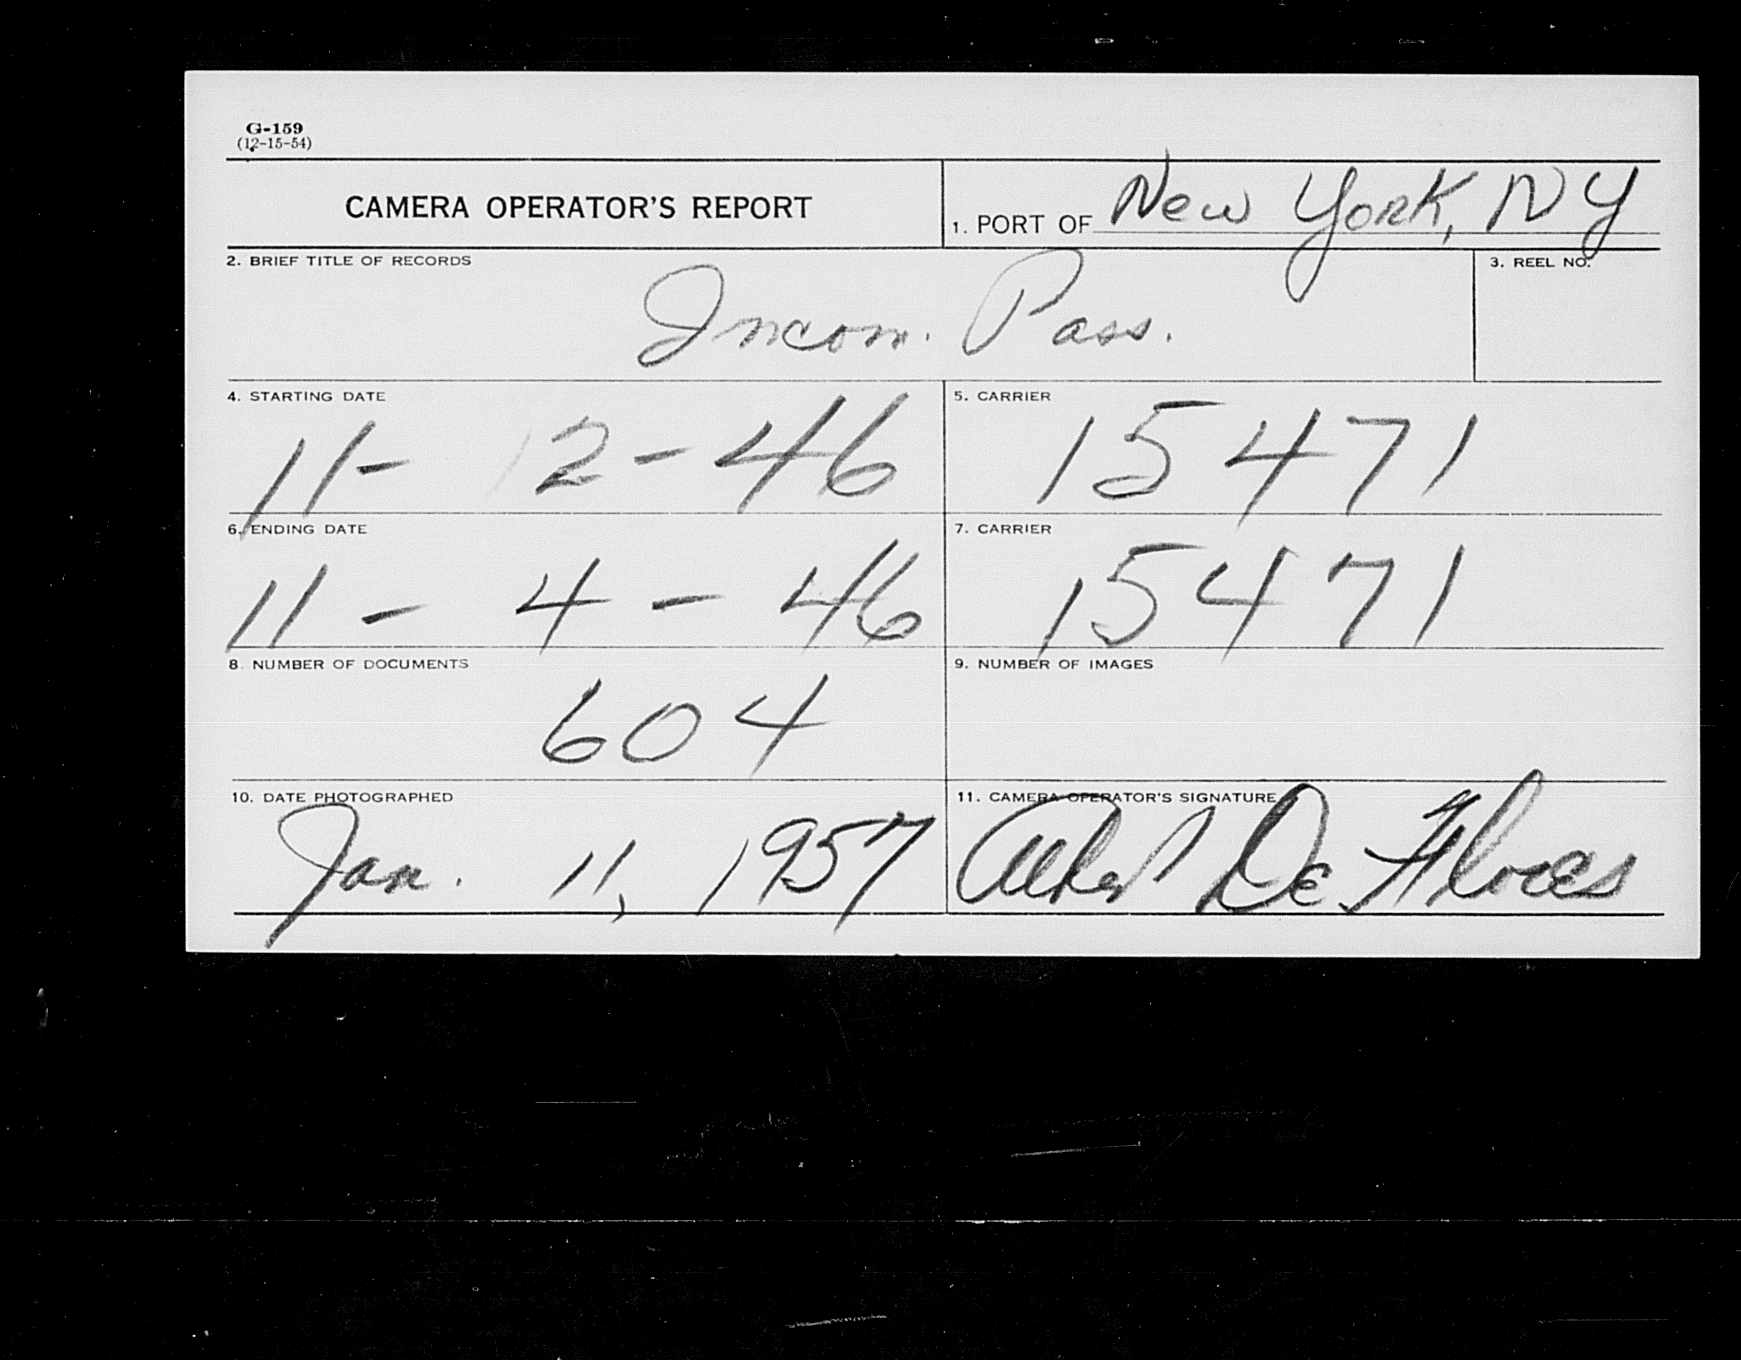 G-159
(12-15-54)
CAMERA OPERATOR'S REPORT
1. PORT OF New York, NY
2. BRIEF TITLE OF RECORDS
3. REEL NO.
Incom. Pass.
4. STARTING DATE
5. CARRIER
11- 2-46
15471
6. ENDING DATE
7. CARRIER
11-4-46
15471
8. NUMBER OF DOCUMENTS
9. NUMBER OF IMAGES
604
10. DATE PHOTOGRAPHED
11. CAMERA OPERATOR'S SIGNATURE
Jan. 11, 1957
Albert De